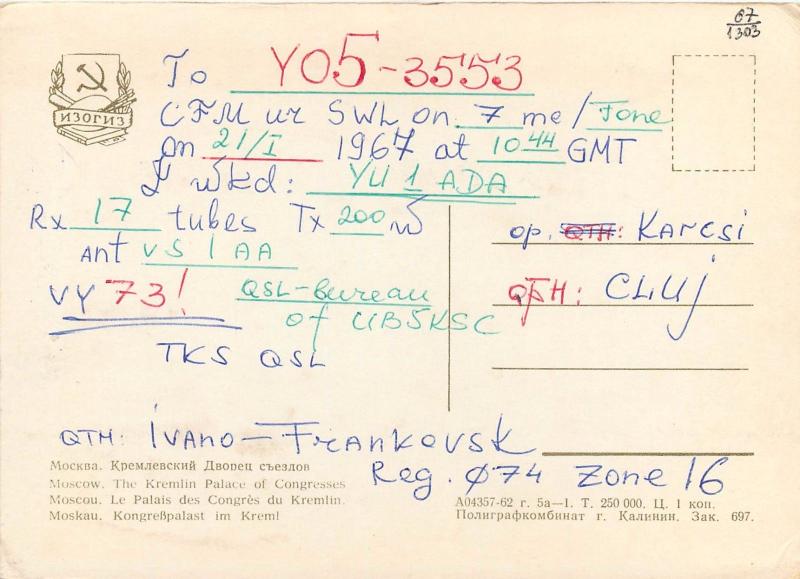 67
1303
ИЗОГИЗ
To YO5-3553
CFM ur SWL on 7 mc/Fone
on 21/I 1967 at 10 44 GMT
I wkd: YU 1 ADA
Rx 17 tubes Tx 200 w
ant VS 1 AA
VY 73!
QSL-bureau
of UB5KSC
TKS QSL
op. QTH: Karcsi
QTH: CLUJ
QTH: Ivano-Frankovsk
Reg. Ø74 Zone 16
Москва. Кремлевский Дворец съездов
Moscow. The Kremlin Palace of Congresses
Moscou. Le Palais des Congrès du Kremlin.
Moskau. Kongreßpalast im Kreml
А04357-62 г. 5а—I. Т. 250 000. Ц. 1 коп.
Полиграфкомбинат г. Калинин. Зак. 697.